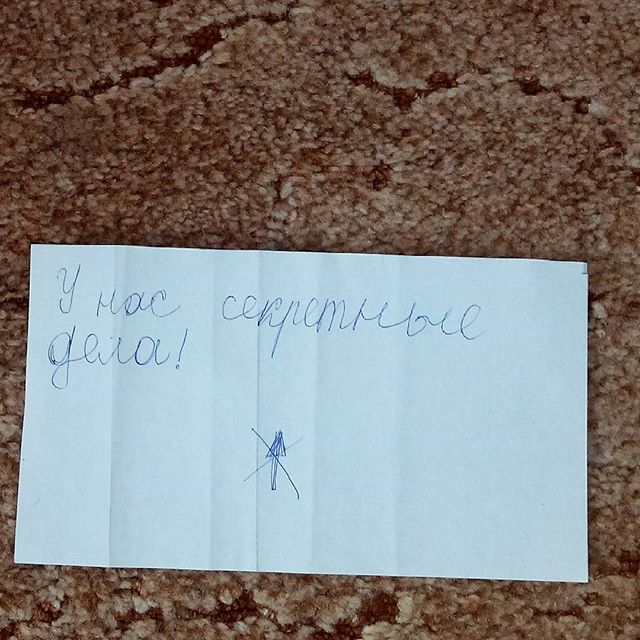 У нас секретные
дела!